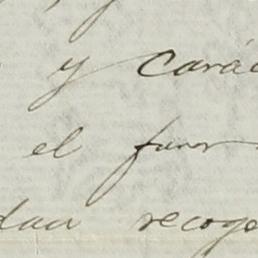 y carác
el favor
dan recoge